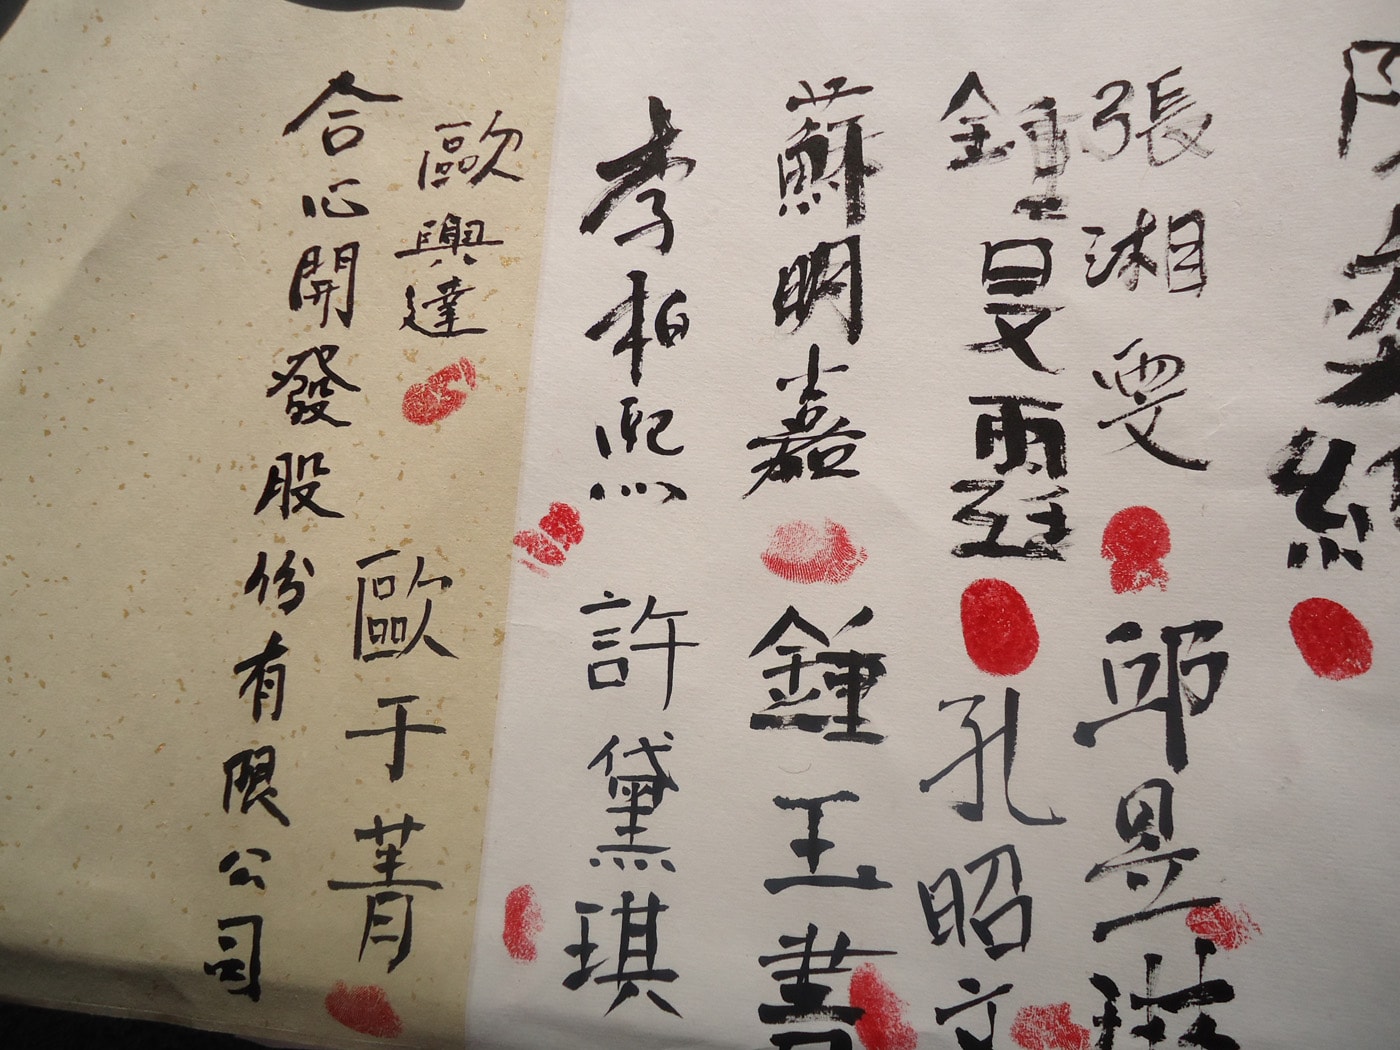 張湘雯
邱昱琳
鍾旻霏
孔昭文
蘇明嘉
鍾玉書
李柏熙
許黛琪
歐興達
歐于菁
合心開發股份有限公司